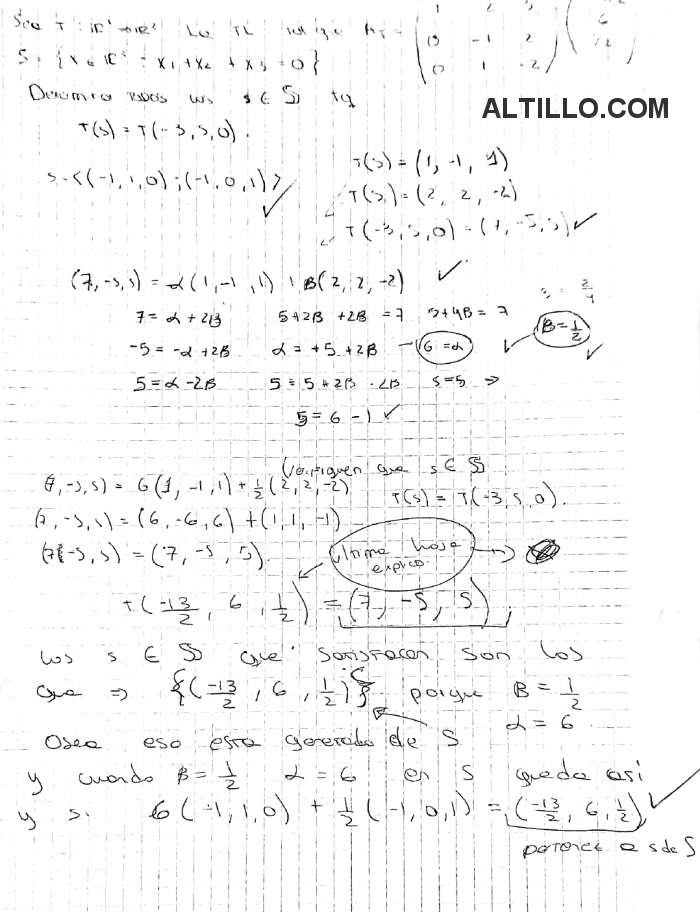 Sea T: ℝ³→ℝ³ la TL 
S: {x ∈ ℝ³ : x₁ + x₂ + x₃ = 0}
0 -1 2
0 1 -2
6
1/2
ALTILLO.COM
todos los s ∈ S tq
T(s) = T(-3, 5, 0).
S = <(-1, 1, 0) ; (-1, 0, 1)>
T(s) = (1, -1, 1)
T(s) = (2, 2, -2)
T(-3, 5, 0) = (7, -5, 5) ✓
(7, -5, 5) = α(1, -1, 1) + B(2, 2, -2) ✓
7 = α + 2B 5 + 2B + 2B = 7 5 + 4B = 7 B = 1/2
-5 = -α + 2B α = +5 + 2B 6 = α
5 = α - 2B 5 = 5 + 2B - 2B 5 = 5 ⇒
5 = 6 - 1 ✓
(Verifiquen que s ∈ S
(7, -5, 5) = 6(1, -1, 1) + 1/2(2, 2, -2) T(s) = T(-3, 5, 0).
(7, -5, 5) = (6, -6, 6) + (1, 1, -1)
(7, -5, 5) = (7, -5, 5).
última hoja
explico
T(-13/2, 6, 1/2) = (7, -5, 5).
Los s ∈ S que satisfacen son los
que ⇒ {(-13/2, 6, 1/2)} porque B = 1/2
α = 6
Osea eso esta generado de S
y cuando B = 1/2 α = 6 en S queda así
y si 6(-1, 1, 0) + 1/2(-1, 0, 1) = (-13/2, 6, 1/2) ✓
pertenece a s de S